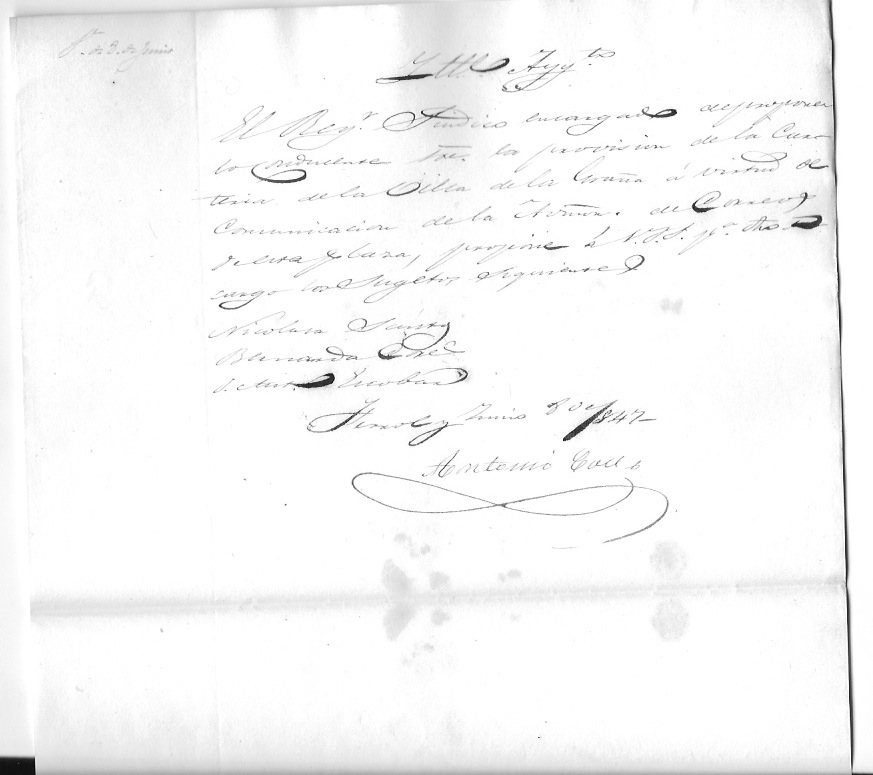 Sn. de 3. de Junio
Yttl. Ayyto
El Regr. Sindico encargado de proponer
lo conducente sre. la provision de la Cura
teria de la Villa de la Graña á virtud de
Comunicacion de la Admon. de Correos
de esta plaza, propone á V.S.Y. pa.
cargo los Sugetos siguientes
Nicolasa
Bernarda
Escobar
Ferrol y Junio 8 de 1847
Antonio